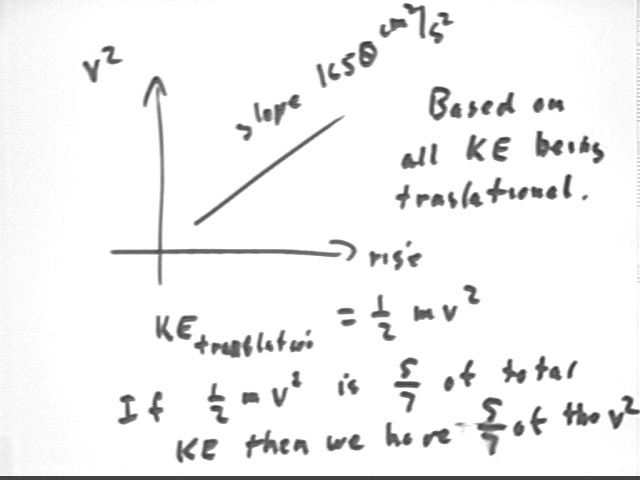 v²
slope 1650 cm²/s²
Based on
all KE being
traslational.
rise
KE translation = 1/2 mv²
If 1/2 mv² is 5/7 of total
KE then we have 5/7 of the v²